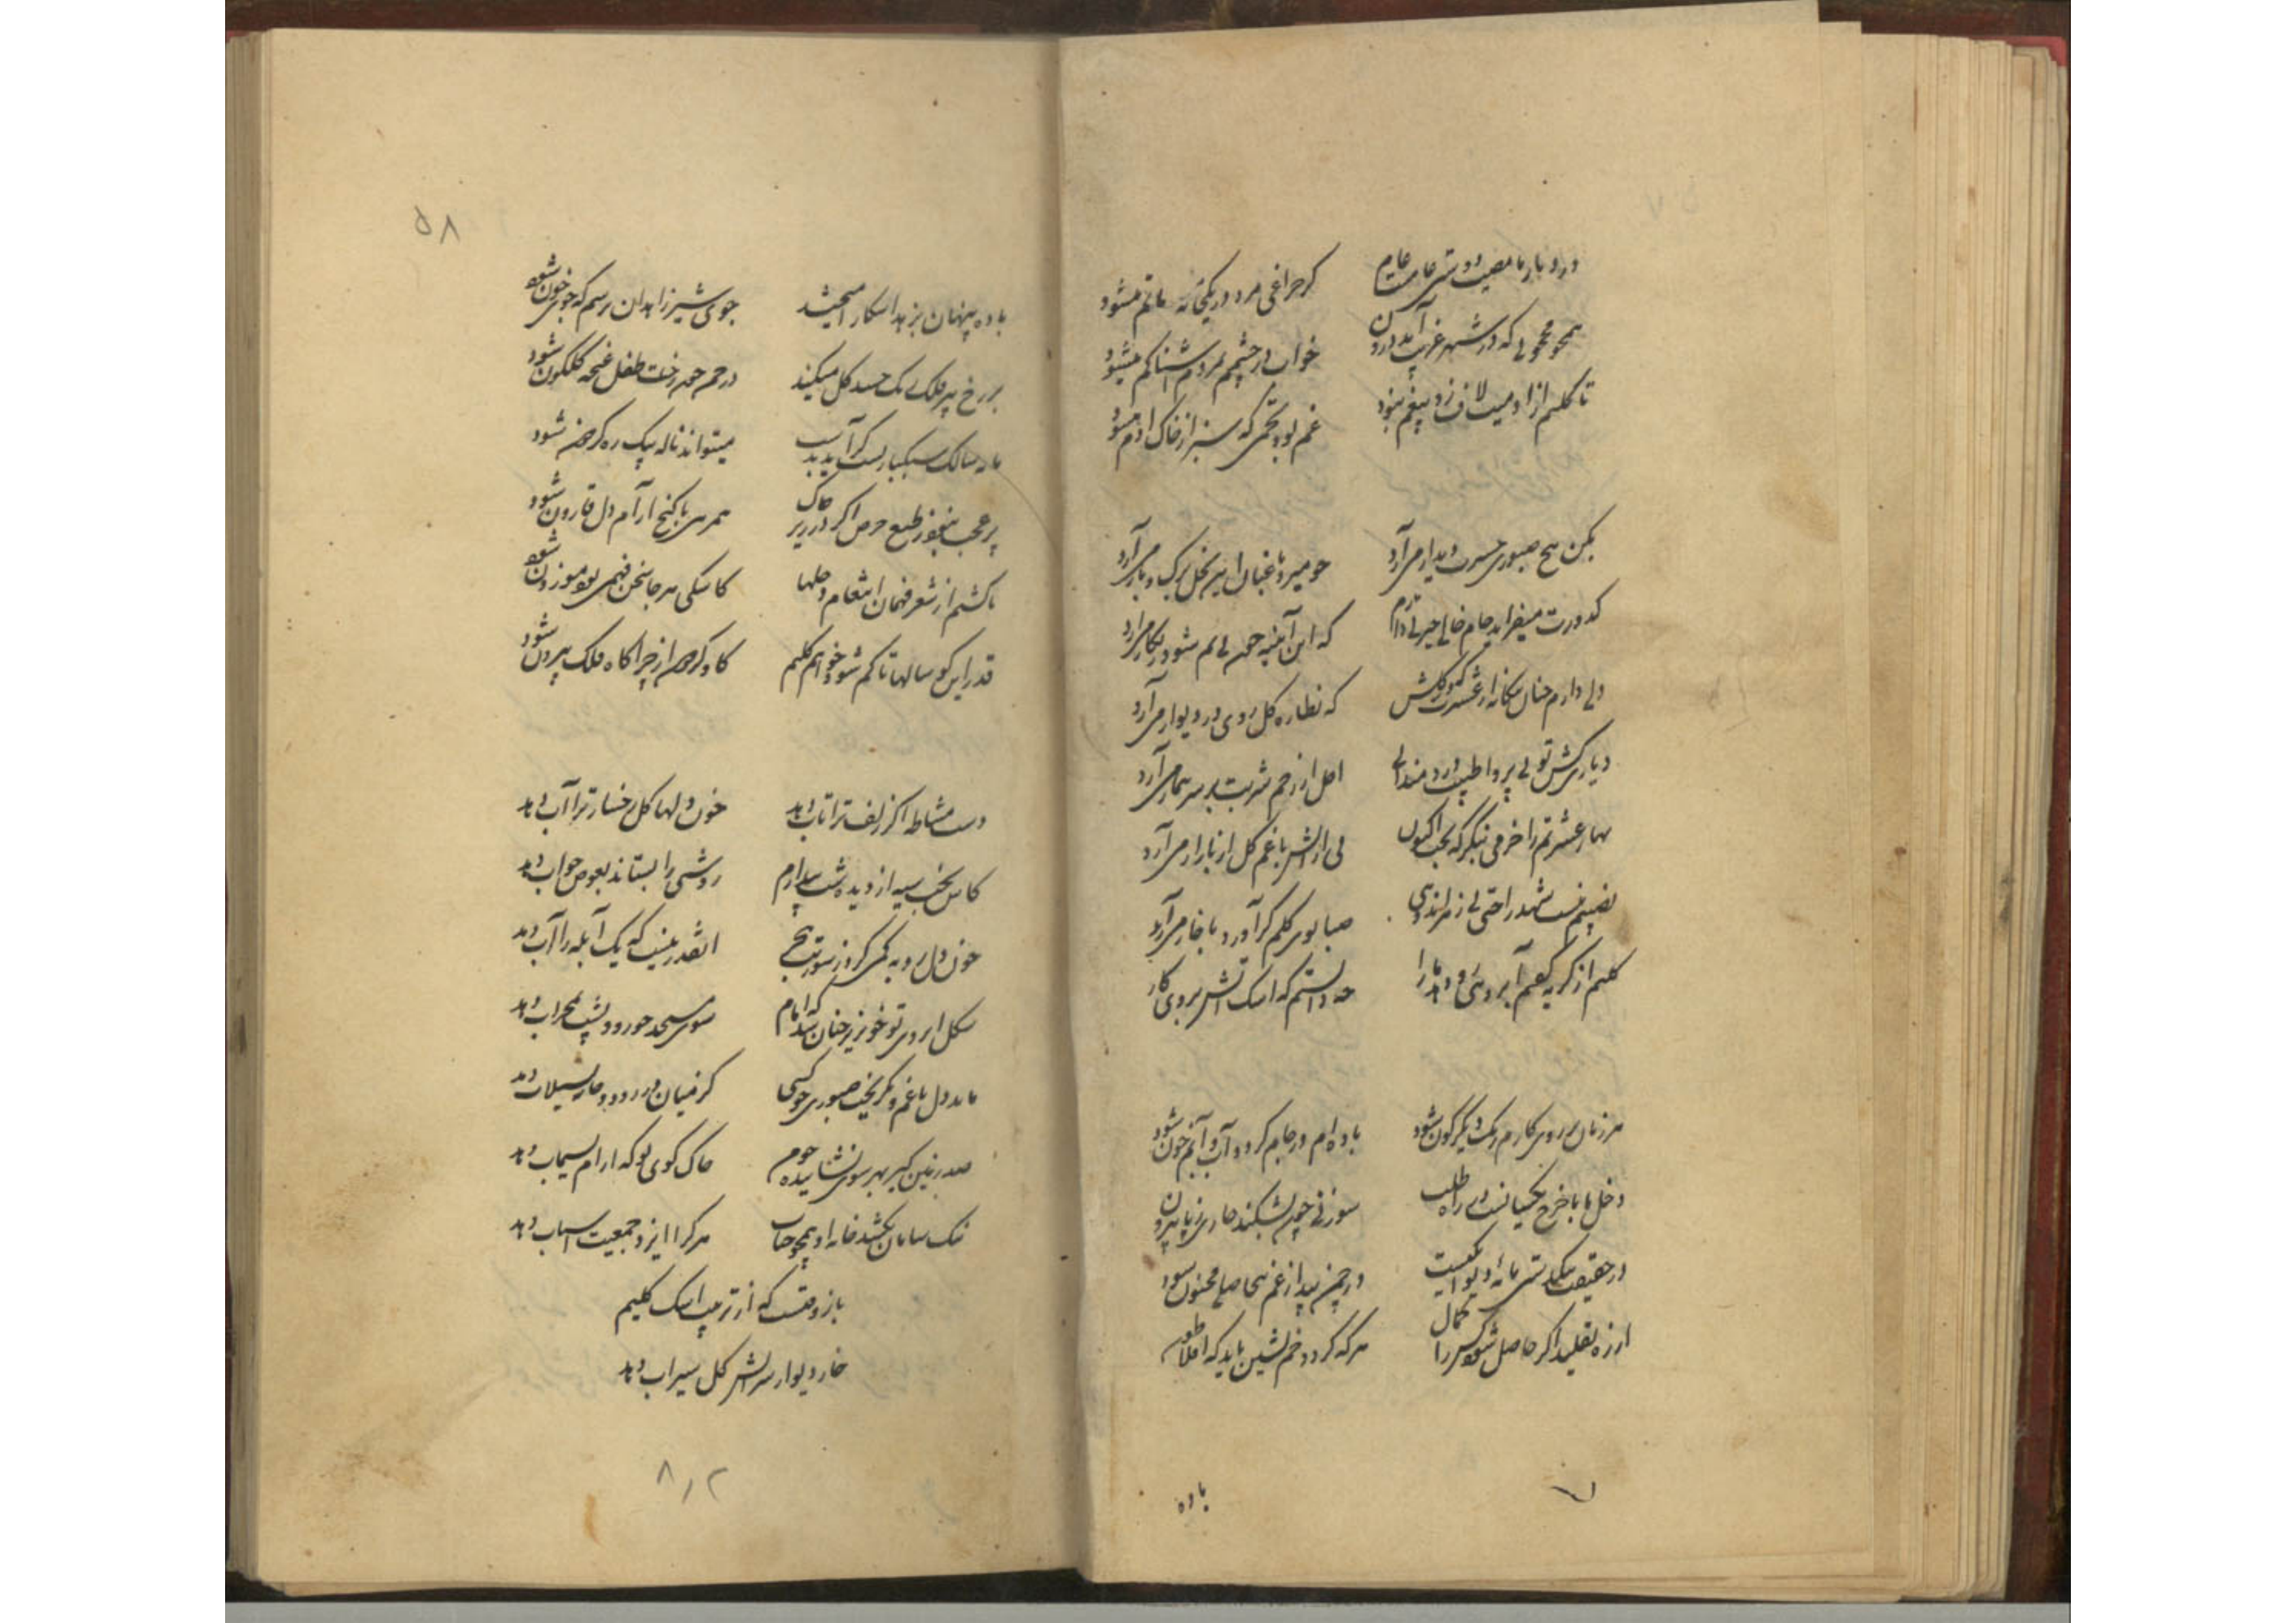 در دیار ما مصیبت دوستی عام
گر چراغی مرد در یکخانه ماتم میشود
همچو مجنونی که در شهر غریب آید درون
خواب در چشمم بمردم آشنا کم میشود
تا کلیم از او میت لاف زد بیغم نبود
غم بود تخمی که سبز از خاک آدم میشود
بمن هیچ صبوری حسرت دیدار می آرد
چو میرد باغبان این نخل برگ و بار می آرد
کدورت میفزاید جام خالی
که این آئینه چون بی نم شود زنگار می آرد
ولی دارم چنان بیگانه از عشرت
که نظاره گل روی در دیوار می آرد
دیار کش تو بی پروا طبیب دردمندانی
اجل از زخم شربت بر سر بیمار می آرد
بهار عشرتم را خرمی بنگر که بخت اکنون
می از آتش باغم گل از بازار می آرد
نصیبم نیست شهد راحتی بی زهر اندوهی
صبا بوی گلم گر آورد با خار می آرد
کلیم از گریه گفتم آبروئی رو دهد ما را
چه دانستم که اشک آتش بروی کار
هر زمان بر روی کارم رنگ دیگر گون شود
باده ام در جام گردد آب و آبم خون شود
دخل ما با خرج یکسانست در راه طلب
سوزنی چون بشکند خاری ز پا بیرون
در حقیقت تنگدستی مایه دیوانگیست
در چمن بید از غم بیحاصلی مجنون شود
از ره تقلید اگر حاصل شود کس را کمال
هر که گردد خم نشین باید که افلاطون
باده
۵۸
باده پنهان بزهد آشکار آمیختند
جوی شیر زاهدان ترسم که جوی خون شود
بر رخ پیر فلک رنگ حسد گل میکند
در چمن چون رخت طفل غنچه گلگون شود
مایه سالک سبکباریست گر آید بدست
میتواند ناله پیک ره گر هم شود
پر عجب نبود ز طبع حرص اگر در زیر خاک
همرهی با گنج آرام دل قارون شود
تا کشم از شعر فهمان انتقام دخلها
کاشکی هر جا سخن فهمی بود موزون شود
قدر این گو سالها تا کم شود خواهم کلیم
گاو گردون از چراگاه فلک بیرون شود
دست مشاطه اگر زلف ترا تاب دهد
خون دلها گل رخسار ترا آب دهد
کاش بخت سیه از دیده شب بیدارم
روشنی را بستاند بعوض خواب دهد
خون دل رو به کمی کرد ز سوز تب هجر
آنقدر نیست که یک آبله را آب دهد
شکل ابروی تو خونریز چنان شد که امام
سوی مسجد چو رود پشت بمحراب دهد
ماند دل با غم و بگریخت صبوری چو کسی
کز میان در رود و خانه بسیلاب دهد
صد زمین گیر بهر سوی نشانیده چو من
خاک کوی تو که آرام بسیماب دهد
ننگ سامان نکشد خانه او همچو حباب
هر کرا ایزد جمعیت اسباب دهد
باز وقتست که از تربیت اشک کلیم
خار دیوار سر آتش گل سیراب دهد
۸٫۲